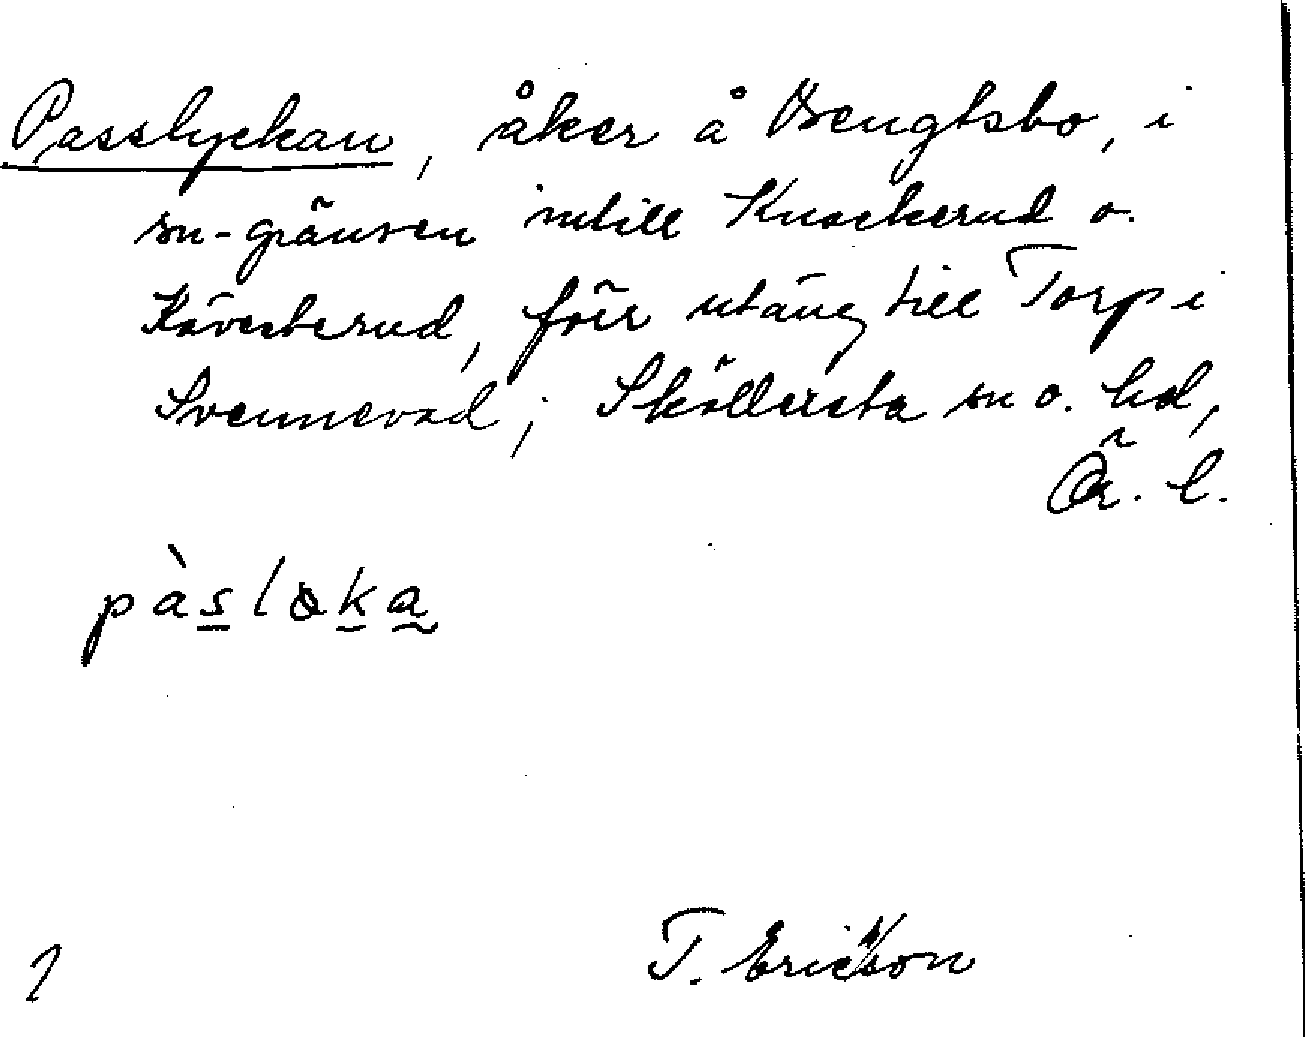 Passlyckan, åker å Bengtsbo, i
sn-gränsen intill Knackerud o.
Kävesterud, förr utäng till Torp i
Svennevad; Sköllersta sn o. hd,
Ör. l.
pàslɵka
T. Ericsson